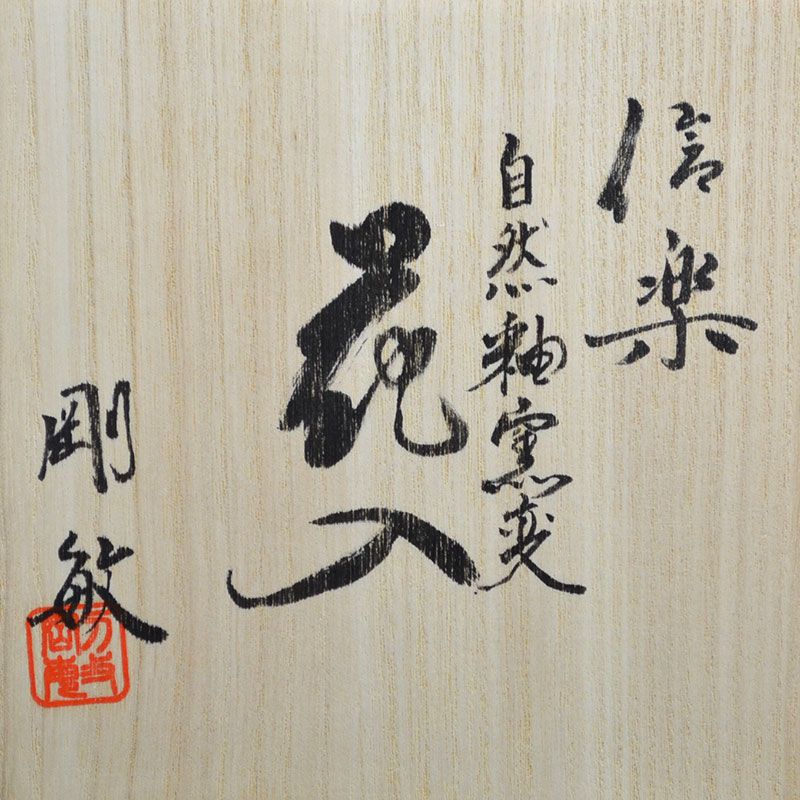 信楽
自然釉窯変
花入
剛敏